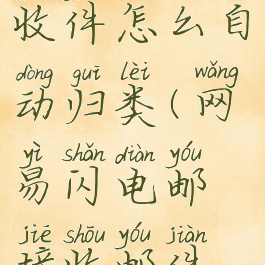 收件怎么自
dòng guī lèi wǎng
动归类(网
yì shǎn diàn yóu
易闪电邮
jiē shōu yóu jiàn
接收邮件